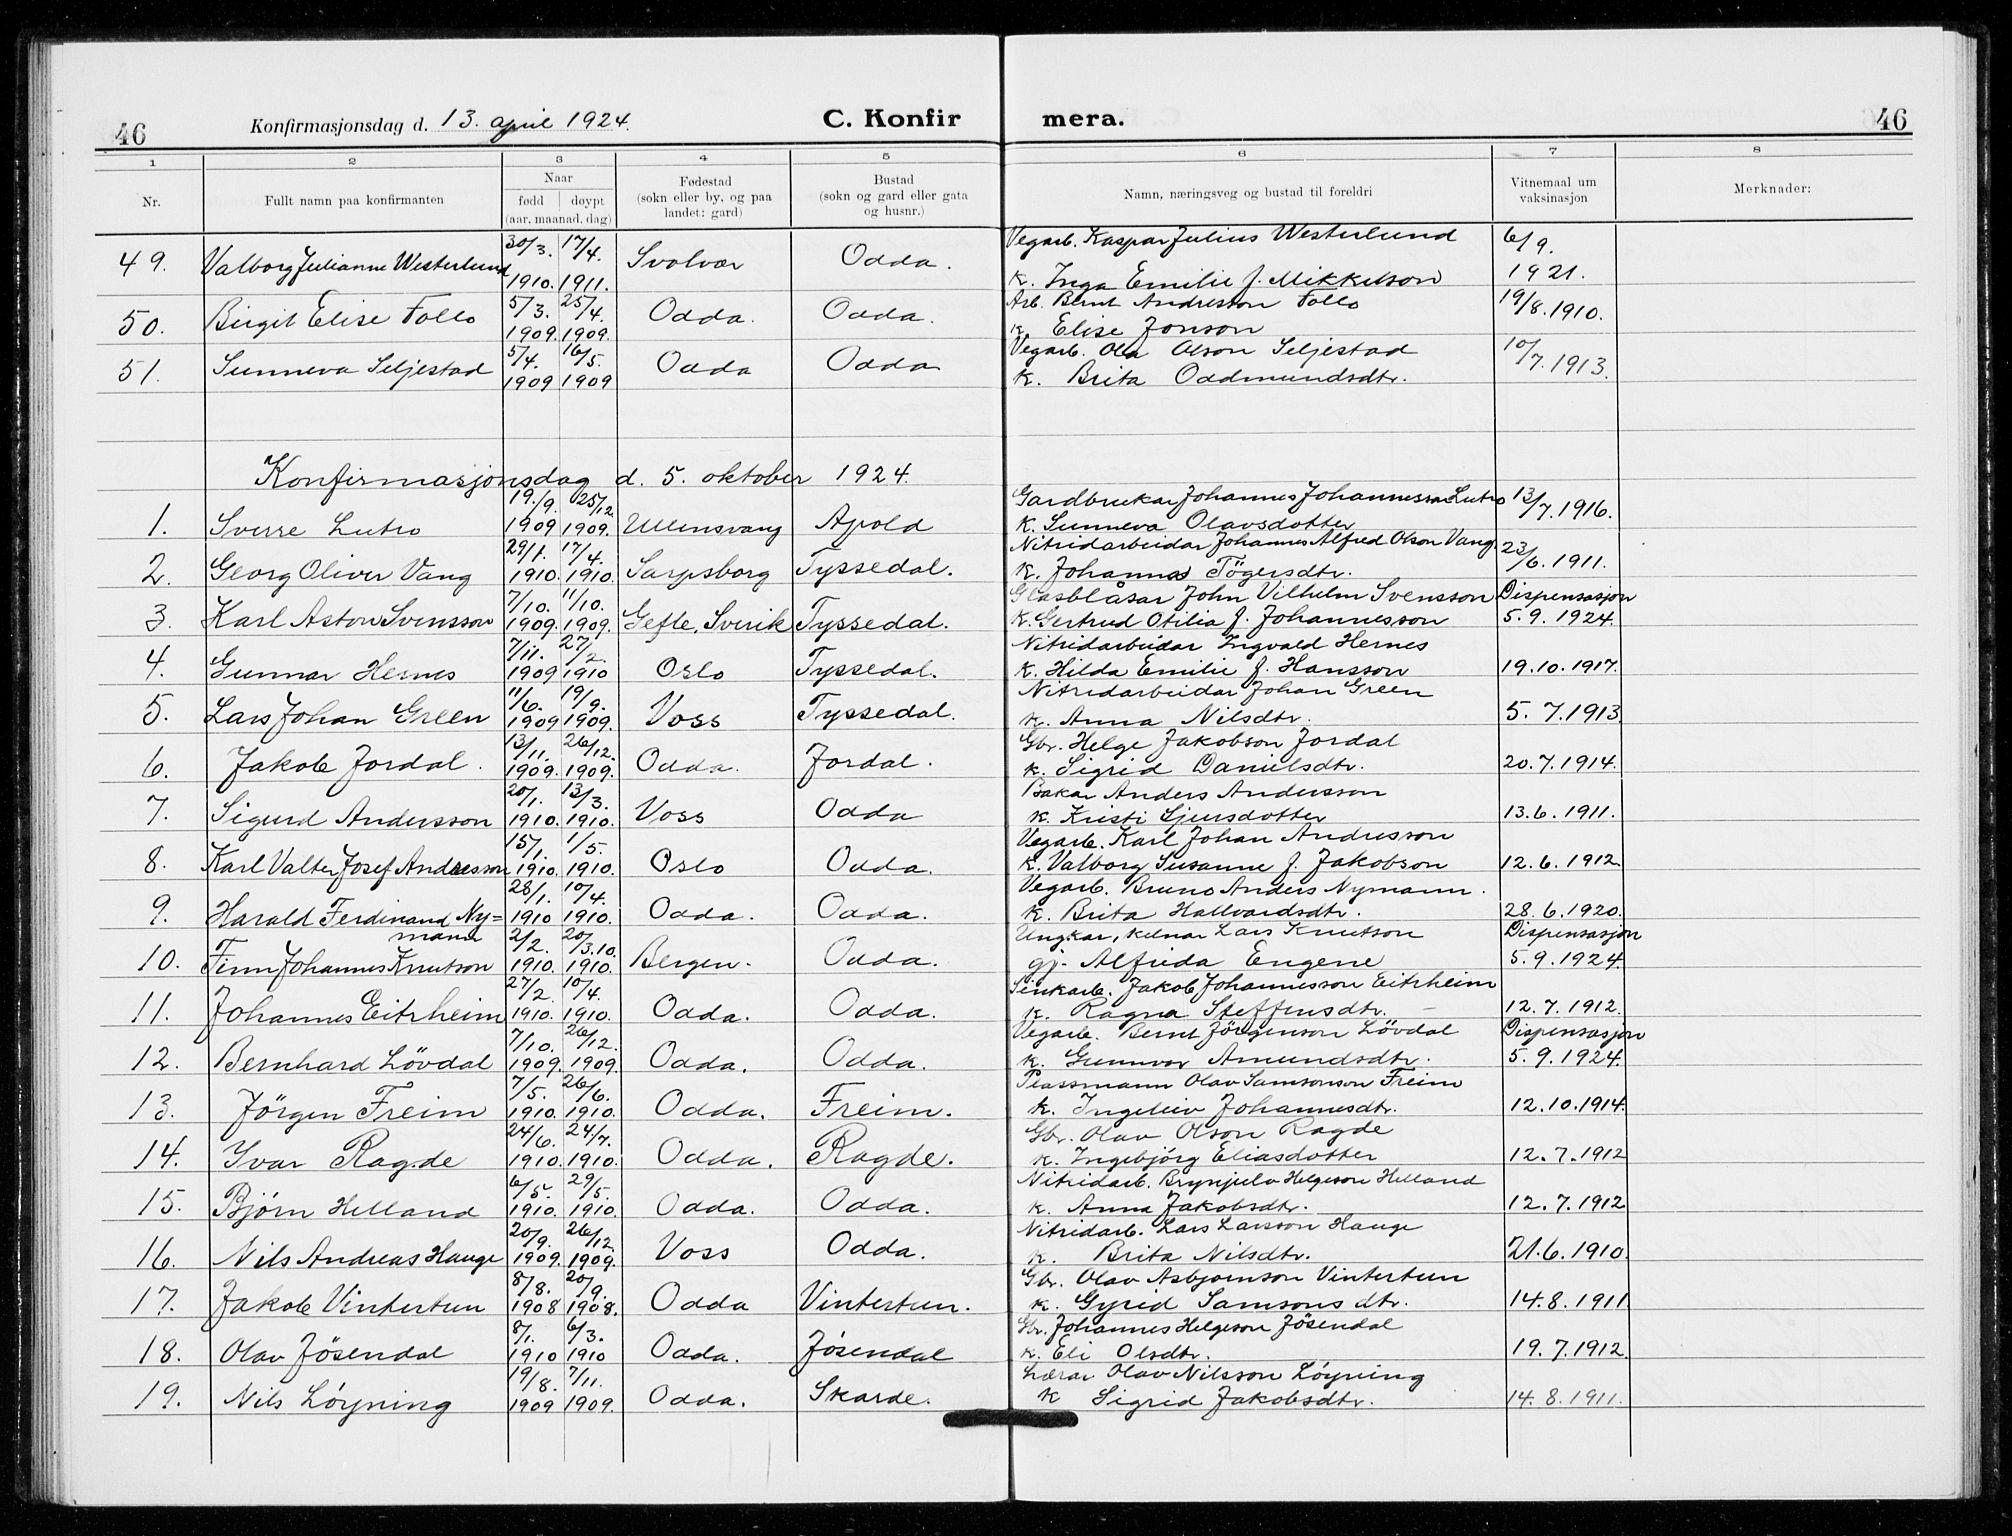 46 Konfirmasjonsdag d. 13. april 1924. C. Konfirmera. 46
1 2 3 4 5 6 7 8
Nr. Fullt namn paa konfirmanten Naar fødd døypt (aar, maanad, dag) Fødestad (sokn eller by, og paa landet: gard) Bustad (sokn og gard eller gata og husnr.) Namn, næringsveg og bustad til foreldri Vitnemaal um vaksinasjon Merknader:
49. Valborg Julianne Westerlund 30/3. 1910. 17/4. 1911. Svolvær Odda. Vegarb. Kaspar Julius Westerlund 6/9. 1921.
k. Inga Emilie f. Mikkelson
50. Birgit Elise Follo 5/3. 1909. 25/4. 1909. Odda. Odda. Arb. Bernt Andresson Follo 19/8. 1910.
k. Elise Jonson
51. Sunneva Seljestad 5/4. 1909 16/5. 1909 Odda Odda Vegarb. Ola Olson Seljestad 10/7. 1913.
k. Brita Oddmundsdtr.
Konfirmasjonsdag d. 5. oktober 1924.
1. Sverre Lutro 19./9. 1909 25/12. 1909. Ullensvang Apold Gardbrukar Johannes Johannesson Lutro 13/7. 1916.
k. Sunneva Olavsdotter
2. Georg Oliver Vang 29/1. 1910. 17/4. 1910. Sarpsborg Tyssedal. Nitridarbeidar Johannes Alfred Olson Vang 23/6. 1911.
k. Johanna Tögersdtr.
3. Karl Aston Svensson 7/10. 1909. 11/10. 1909. Gefle, Sverik Tyssedal. Glasblåsar John Vilhelm Svensson Dispensasjon
k. Gertrud Otilia f. Johannesson 5. 9. 1924.
4. Gunnar Hernes 7/11. 1909 27/2. 1910 Oslo Tyssedal. Nitridarbeidar Ingvald Hernes
k. Hilda Emilie f. Hansson 19.10.1917.
5. Lars Johan Green 11/6. 1909 19/9. 1909. Voss Tyssedal. Nitridarbeidar Johan Green
k. Anna Nilsdtr. 5. 7. 1913.
6. Jakob Jordal. 13/11. 1909. 26/12. 1909. Odda. Jordal. Gbr. Helge Jakobson Jordal
k. Sigrid Danielsdtr. 20. 7. 1914.
7. Sigurd Andersson 20/1. 1910. 13/3. 1910. Voss Odda Bakar Anders Andersson
k. Kristi Sjursdotter 13. 6. 1911.
8. Karl Valter Josef Andresson 15/1. 1910. 1/5. 1910. Oslo Odda. Vegarb. Karl Johan Andresson
k. Valborg Susanne f. Jakobson 12. 6. 1912.
9. Harald Ferdinand Ny= 28/1. 1910 10/4. 1910. Odda. Odda. Vegarb. Bruno Anders Nymann.
mann k. Brita Hallvardsdtr. 28. 6. 1920.
10. Finn Johannes Knutson 2/2. 1910. 20/3.10. 1910. Bergen. Odda. Ungkar, kelnar Lars Knutson Dispensasjon
gj. Alfrida Engene 5. 9. 1924.
11. Johannes Eitrheim 27/2. 1910. 10/4. 1910. Odda. Odda. Sinkarb. Jakob Johannesson Eitrheim
k. Ragna Steffensdtr. 12. 7. 1912.
12. Bernhard Lövdal 7/10. 1909. 26/12. 1909. Odda. Odda. Vegarb. Bernt Jörgenson Lövdal Dispensasjon
k. Gunnvor Amundsdtr. 5. 9. 1924.
13. Jörgen Freim 7/5. 1910. 26/6. 1910. Odda. Freim. Plassmann Olav Samsonson Freim
k. Ingeleiv Johannesdtr. 12.10.1914.
14. Ivar Ragde 24/6. 1910. 24/7. 1910. Odda. Ragde. Gbr. Olav Olson Ragde
k. Ingebjörg Eliasdotter 12. 7. 1912
15. Bjørn Helland 6/5. 1910. 29/5. 1910. Odda. Odda. Nitridarb. Brynjulv Helgeson Helland
k. Anna Jakobsdtr. 12. 7. 1912
16. Nils Andreas Hauge 20/9. 1909. 26/12. 1909. Voss Odda. Nitridarb. Lars Larsson Hauge
k. Brita Nilsdtr. 21. 6. 1910.
17. Jakob Vintertun 8/8. 1908 20/9. 1908. Odda Vintertun. Gbr. Olav Asbjørnson Vintertun
k. Gyrid Samsonsdtr. 14. 8. 1911.
18. Olav Jösendal 8/1. 1910 6/3. 1910 Odda. Jösendal Gbr. Johannes Helgeson Jösendal
k. Eli Olsdtr. 19. 7. 1912.
19. Nils Löyning 19/8. 1909 7/11. 1909. Odda. Skarde. Lærar Olav Nilsson Löyning
k Sigrid Jakobsdtr. 14. 8. 1911.